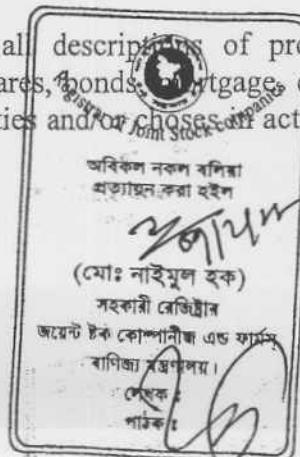 all descriptions of pro
ares, bonds, mortgage,
ties and/or choses in act
Registrar of Joint Stock Companies
অবিকল নকল বলিয়া
প্রত্যায়ন করা হইল
(মোঃ নাইমুল হক)
সহকারী রেজিষ্ট্রার
জয়েন্ট ষ্টক কোম্পানীজ এন্ড ফার্মস
বাণিজ্য মন্ত্রণালয়।
লেখক :
পাঠক :